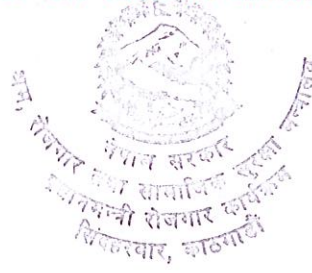 नेपाल सरकार
श्रम, रोजगार तथा सामाजिक सुरक्षा मन्त्रालय
प्रधानमन्त्री रोजगार कार्यक्रम
सिंहदरवार, काठमाडौं